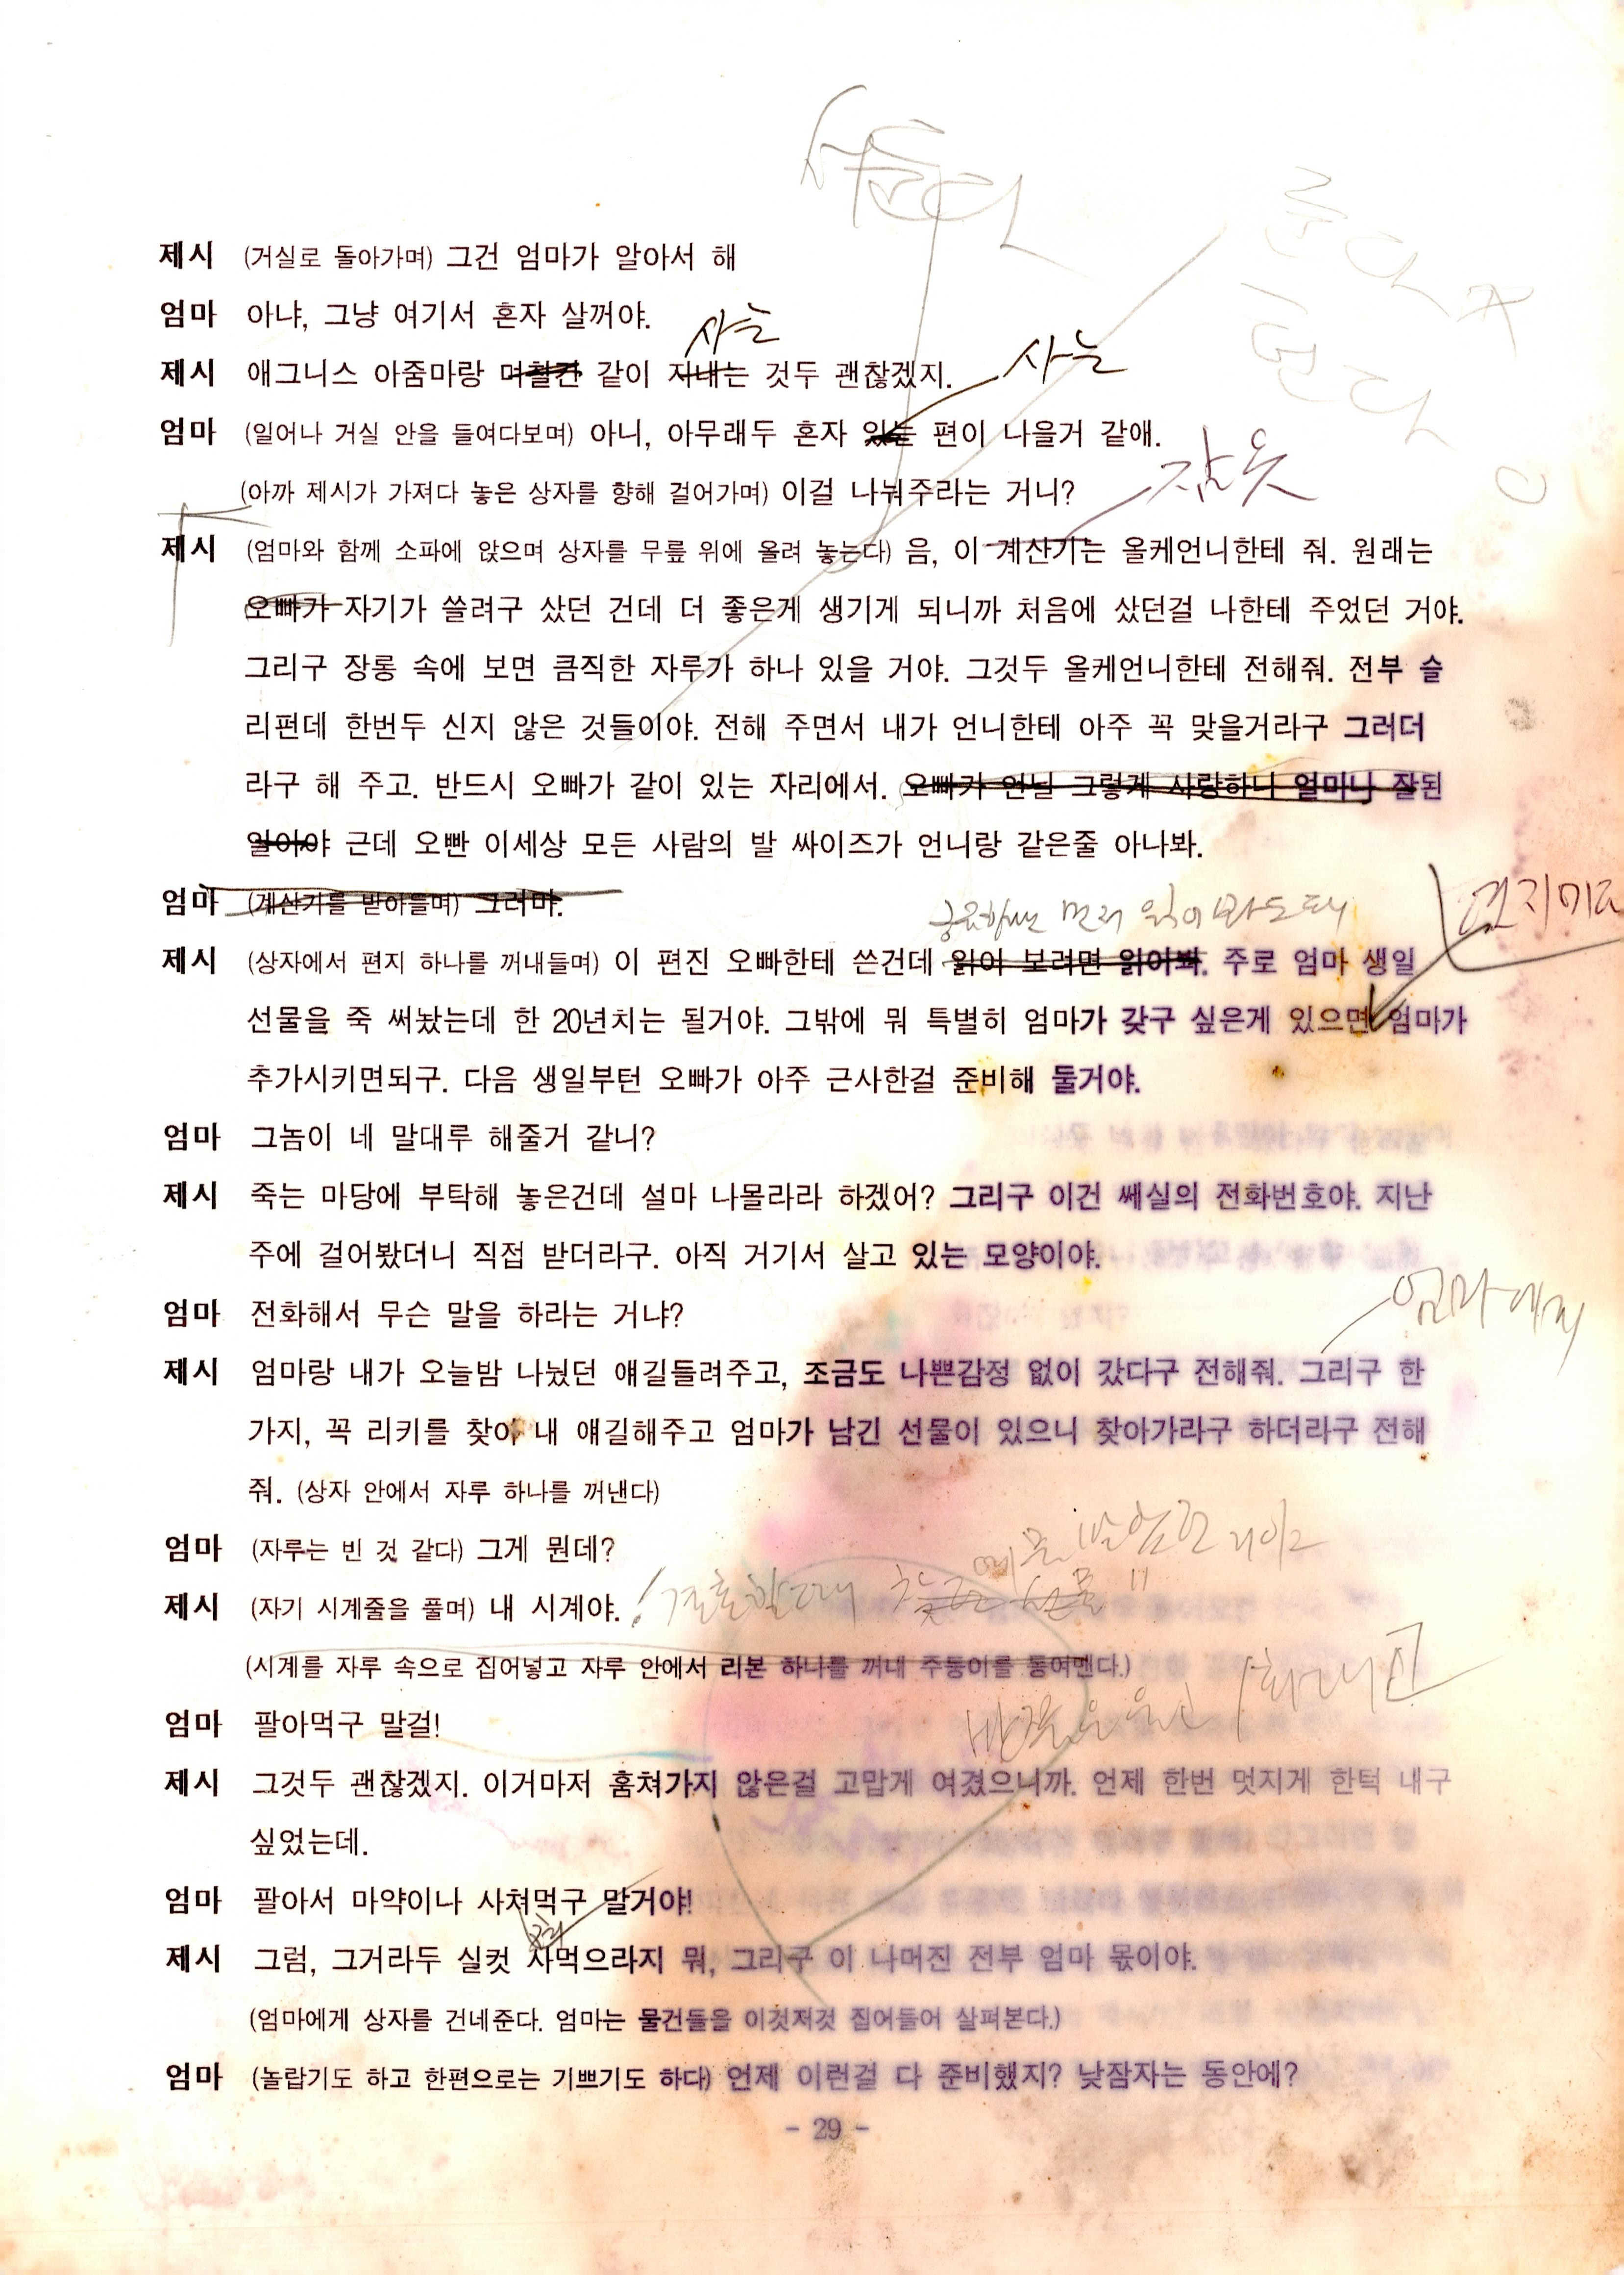 제시 (거실로 돌아가며) 그건 엄마가 알아서 해
엄마 아냐, 그냥 여기서 혼자 살꺼야.
사는
사는
제시 애그니스 아줌마랑 며칠간 같이 지내는 것두 괜찮겠지.
엄마 (일어나 거실 안을 들여다보며) 아니, 아무래두 혼자 있는 편이 나을거 같애.
잠옷
(아까 제시가 가져다 놓은 상자를 향해 걸어가며) 이걸 나눠주라는 거니?
제시 (엄마와 함께 소파에 앉으며 상자를 무릎 위에 올려 놓는다) 음, 이 계산기는 올케언니한테 줘. 원래는
오빠가 자기가 쓸려구 샀던 건데 더 좋은게 생기게 되니까 처음에 샀던걸 나한테 주었던 거야.
그리구 장롱 속에 보면 큼직한 자루가 하나 있을 거야. 그것두 올케언니한테 전해줘. 전부 슬
리펀데 한번두 신지 않은 것들이야. 전해 주면서 내가 언니한테 아주 꼭 맞을거라구 그러더
라구 해 주고. 반드시 오빠가 같이 있는 자리에서. 오빠가 언닐 그렇게 사랑하니 얼마나 잘된
일이야 근데 오빤 이세상 모든 사람의 발 싸이즈가 언니랑 같은줄 아나봐.
엄마 (계산기를 받아들며) 그러마.
궁금하면 먼저 읽어봐도 돼
제시 (상자에서 편지 하나를 꺼내들며) 이 편진 오빠한테 쓴건데 읽어 보려면 읽어봐. 주로 엄마 생일
선물을 죽 써놨는데 한 20년치는 될거야. 그밖에 뭐 특별히 엄마가 갖구 싶은게 있으면 엄마가
추가시키면되구. 다음 생일부턴 오빠가 아주 근사한걸 준비해 둘거야.
엄마 그놈이 네 말대루 해줄거 같니?
제시 죽는 마당에 부탁해 놓은건데 설마 나몰라라 하겠어? 그리구 이건 쎄실의 전화번호야. 지난
주에 걸어봤더니 직접 받더라구. 아직 거기서 살고 있는 모양이야.
엄마 전화해서 무슨 말을 하라는 거냐?
엄마에게
제시 엄마랑 내가 오늘밤 나눴던 얘길들려주고, 조금도 나쁜감정 없이 갔다구 전해줘. 그리구 한
가지, 꼭 리키를 찾아 내 얘길해주고 엄마가 남긴 선물이 있으니 찾아가라구 하더라구 전해
줘. (상자 안에서 자루 하나를 꺼낸다)
엄마 (자루는 빈 것 같다) 그게 뭔데?
제시 (자기 시계줄을 풀며) 내 시계야. 결혼할때
(시계를 자루 속으로 집어넣고 자루 안에서 리본 하나를 꺼내 주둥이를 동여맨다.)
엄마 팔아먹구 말걸!
제시 그것두 괜찮겠지. 이거마저 훔쳐가지 않은걸 고맙게 여겼으니까. 언제 한번 멋지게 한턱 내구
싶었는데.
엄마 팔아서 마약이나 사쳐먹구 말거야!
제시 그럼, 그거라두 실컷 사먹으라지 뭐, 그리구 이 나머진 전부 엄마 몫이야.
(엄마에게 상자를 건네준다. 엄마는 물건들을 이것저것 집어들어 살펴본다.)
엄마 (놀랍기도 하고 한편으로는 기쁘기도 하다) 언제 이런걸 다 준비했지? 낮잠자는 동안에?
- 29 -